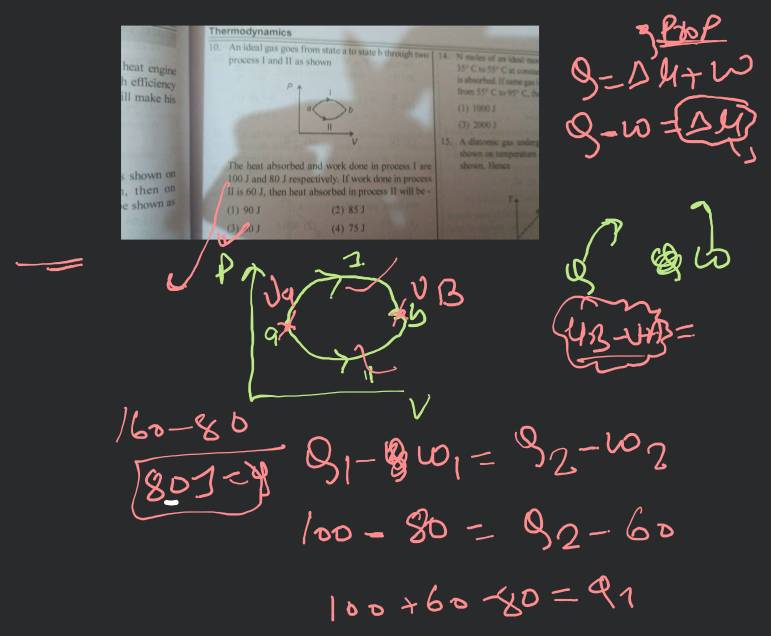 Thermodynamics
10. An ideal gas goes from state a to state b through two
process I and II as shown
P
I
a
b
II
V
The heat absorbed and work done in process I are
100 J and 80 J respectively. If work done in process
II is 60 J, then heat absorbed in process II will be -
(1) 90 J (2) 85 J
(3) 80 J (4) 75 J
heat engine
h efficiency
ill make his
s shown on
, then on
e shown as
14. N moles of an ideal
35° C to 55° C at
is absorbed. If same gas
from 55° C to 95° C,
(1) 1000 J
(3) 2000 J
15. A diatomic gas
shown on temperature
shown. Hence
T
Q = ΔU + W
Q - W = ΔU
Q W
P
1
Ua
UB
a
b
II
V
UB - UA =
160 - 80
80J =
Q1 - W1 = Q2 - W2
100 - 80 = Q2 - 60
100 + 60 - 80 = Q2